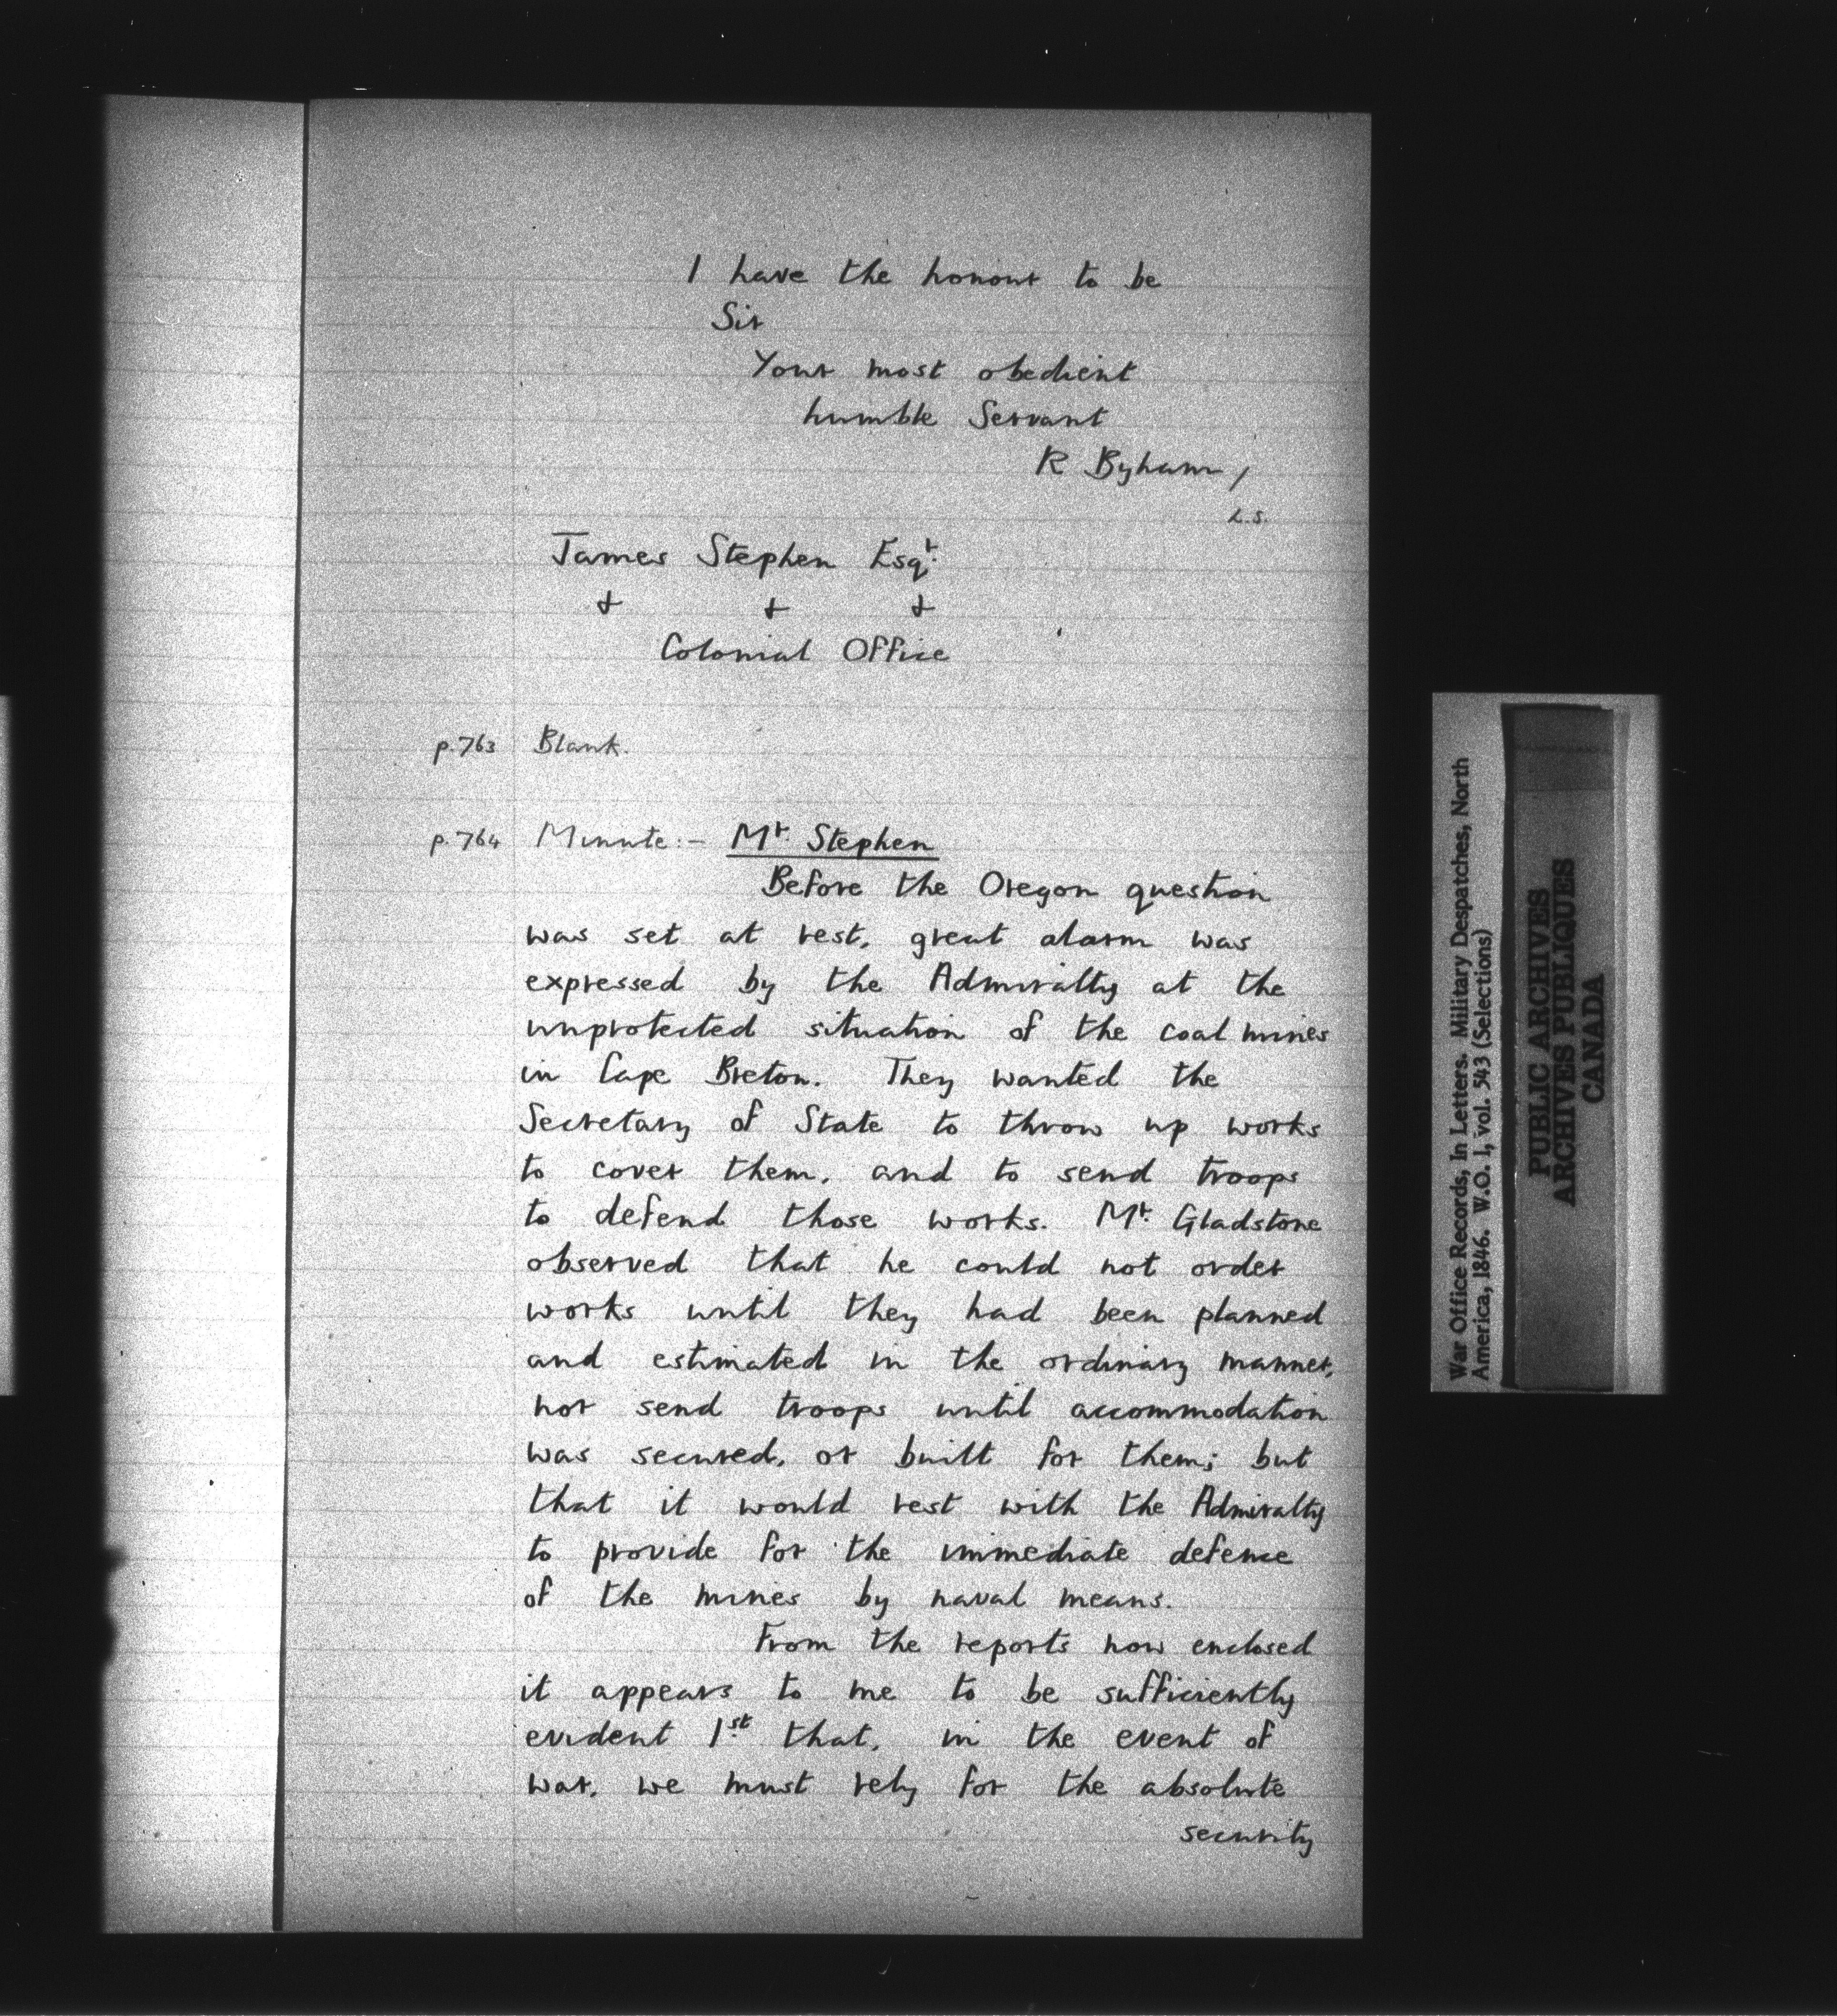 I have the honour to be
Sir
Your most obedient
humble Servant
R Byham /
L.S.
James Stephen Esqr.
& & &
Colonial Office
p.763 Blank.
p.764 Minute:- Mr. Stephen
Before the Oregon question
was set at rest, great alarm was
expressed by the Admiralty at the
unprotected situation of the coal mines
in Cape Breton. They wanted the
Secretary of State to throw up works
to cover them, and to send troops
to defend those works. Mr. Gladstone
observed that he could not order
works until they had been planned
and estimated in the ordinary manner,
nor send troops until accommodation
was secured, or built for them; but
that it would rest with the Admiralty
to provide for the immediate defence
of the mines by naval means.
From the reports now enclosed
it appears to me to be sufficiently
evident 1st that, in the event of
war, we must rely for the absolute
security
War Office Records, In Letters. Military Despatches, North
America, 1846. W.O. 1, vol. 543 (Selections)
PUBLIC ARCHIVES
ARCHIVES PUBLIQUES
CANADA